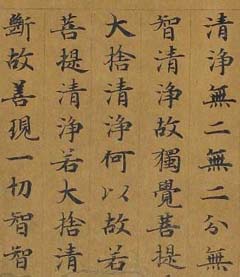 清淨無二無二分無
智清淨故獨覺菩提
大捨清淨何以故若
菩提清淨若大捨清
斷故善現一切智智